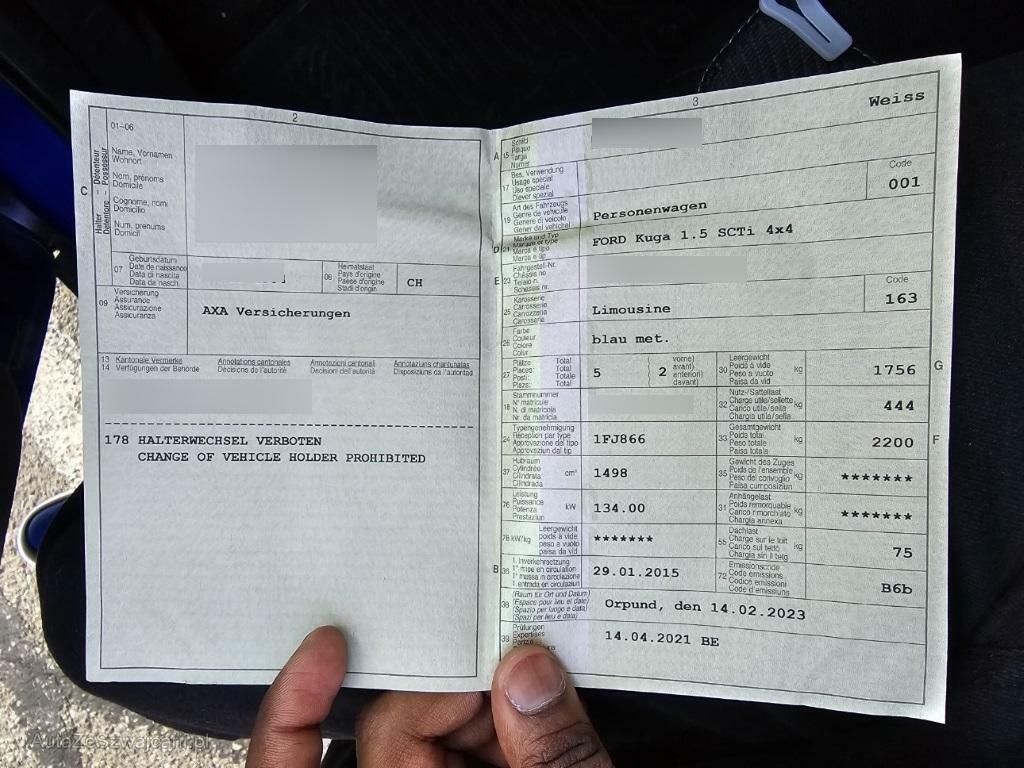 2
01-06
Halter - Détenteur
Detentore - Possessur
C
Name, Vornamen
Wohnort
Nom, prénoms
Domicile
Cognome, nomi
Domicilio
Num, prenums
Domicil
07
Geburtsdatum
Date de naissance
Data di nascita
Data da nasch.
06
Heimatstaat
Pays d'origine
Paese d'origine
Stadi d'origin
CH
09
Versicherung
Assurance
Assicurazione
Assicuranza
AXA Versicherungen
13
14
Kantonale Vermerke
Verfügungen der Behörde
Annotations cantonales
Décisions de l'autorité
Annotazioni cantonali
Decisioni dell'autorità
Annotaziuns chantunalas
Disposiziuns da l'autoritad
178 HALTERWECHSEL VERBOTEN
CHANGE OF VEHICLE HOLDER PROHIBITED
3
A
15
Schild
Plaque
Targa
Numer
Weiss
17
Bes. Verwendung
Usage spécial
Uso speciale
Diever spezial
19
Art des Fahrzeugs
Genre de véhicule
Genere di veicolo
Gener dal vehichel
Personenwagen
Code
001
D
21
Marke und Typ
Marque et type
Marca e tipo
Marca e tip
FORD Kuga 1.5 SCTi 4x4
E
23
Fahrgestell-Nr.
Châssis no
Telaio n.
Schassis nr.
25
Karosserie
Carrosserie
Carrozzeria
Carossaria
Limousine
Code
163
26
Farbe
Couleur
Colore
Colur
blau met.
27
Plätze: Total
Places: Total
Posti: Totale
Plazs: Total
5
2
vorne)
avant)
anteriori)
davant)
30
Leergewicht
Poids à vide
Peso a vuoto
Paisa da vid
kg
1756
G
18
Stammnummer
N° matricule
N. di matricola
Nr. da matricla
32
Nutz-/Sattellast
Charge utile/sellette
Carico utile/sella
Chargia utila/sella
kg
444
24
Typengenehmigung
Réception par type
Approvazione del tipo
Approvaziun dal tip
1FJ866
33
Gesamtgewicht
Poids total
Peso totale
Paisa totala
kg
2200
F
37
Hubraum
Cylindrée
Cilindrata
Cilindrada
cm³
1498
35
Gewicht des Zuges
Poids de l'ensemble
Peso del convoglio
Paisa cumposiziun
kg
*******
76
Leistung
Puissance
Potenza
Prestaziun
kW
134.00
31
Anhängelast
Poids remorquable
Carico rimorchiato
Chargia annexa
kg
*******
78
kW/kg
Leergewicht
poids à vide
peso a vuoto
paisa da vid
*******
55
Dachlast
Charge sur le toit
Carico sul tetto
Chargia sin il tetg
kg
75
B
36
1. Inverkehrsetzung
1re mise en circulation
1a messa in circolazione
1. entrada en circulaziun
29.01.2015
72
Emissionscode
Code émissions
Codice emissioni
Code d'emissiuns
B6b
38
(Raum für Ort und Datum)
(Espace pour lieu et date)
(Spazio per luogo e data)
(Spazi per lieu e data)
Orpund, den 14.02.2023
39
Prüfungen
Expertises
14.04.2021 BE
AutaZeSzwajcarii.pl